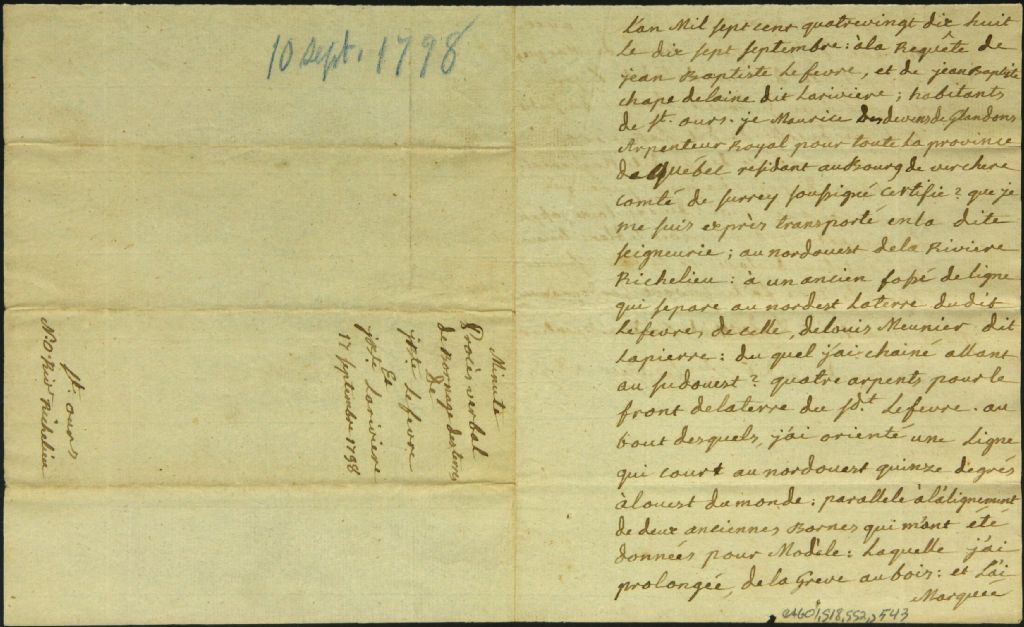 10 Sept. 1798
Minute
Procès verbal
de Bornage des terres
De
jn. Bte Lefevre
Et
jn. Bte Lariviere
17 Septembre 1798
St. ours
N:O Riv. Richelieu
L'an Mil sept cent quatrevingt dix huit
Le dix sept septembre: à la Requête de
jean Baptiste Lefevre, et de jean Baptiste
chapedelaine dit Lariviere; habitants
de St. ours. je Maurice Desdevens de Glandons
Arpenteur Royal pour toute La province
de Québec résidant au Bourg de verchere
Comté de surrey soussigné certifie? que je
me suis exprès transporté en la dite
seigneurie; au nordouest de la Riviere
Richelieu: à un ancien fossé de ligne
qui separe au nordest La terre du dit
Lefevre, de celle, de louis Meunier dit
Lapierre: du quel j'ai chainé allant
au sudouest? quatre arpents pour le
front de la terre du Sdt. Lefevre. au
bout desquels, j'ai orienté une Ligne
qui court au nordouest quinze degrés
à l'ouest du monde: parallele à l'alignement
de deux anciennes Bornes qui m'ont été
données pour Modèle: Laquelle j'ai
prolongée, de la Greve au bois: et L'ai
Marquée
1,518,552, 543